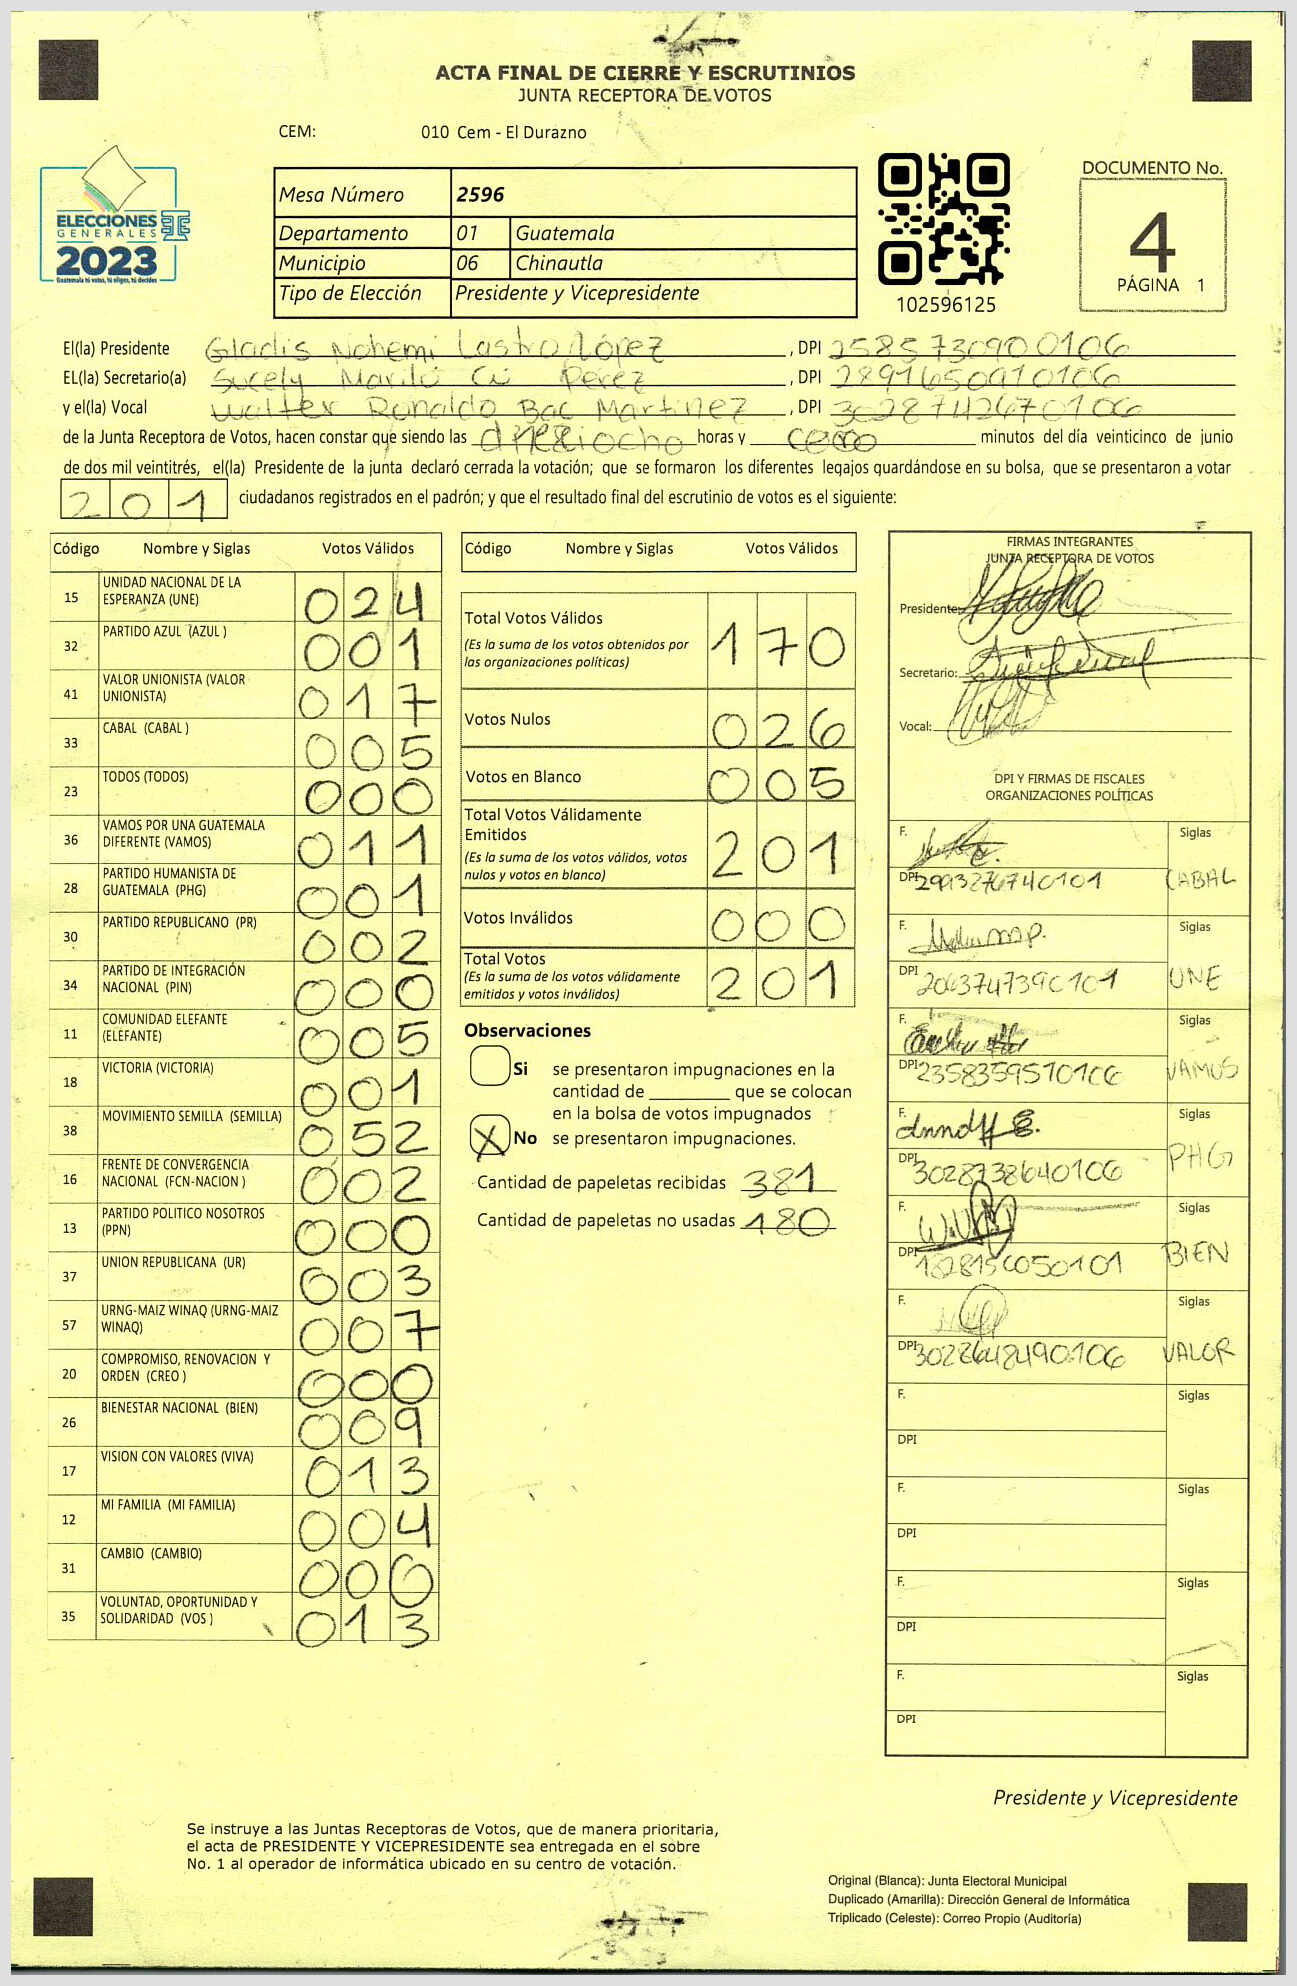 ACTA FINAL DE CIERRE Y ESCRUTINIOS
JUNTA RECEPTORA DE VOTOS
CEM: 010 Cem - El Durazno
ELECCIONES
GENERALES
2023
Guatemala tú votas, tú eliges, tú decides
Mesa Número 2596
Departamento 01 Guatemala
Municipio 06 Chinautla
Tipo de Elección Presidente y Vicepresidente
102596125
DOCUMENTO No.
4
PÁGINA 1
El(la) Presidente Gladis Nohemi Lastro López, DPI 2585730900106
EL(la) Secretario(a) Sucely Mariló Cú Perez, DPI 2891650910106
y el(la) Vocal Walter Ronaldo Bac Martinez, DPI 3028742670106
de la Junta Receptora de Votos, hacen constar que siendo las dieciocho horas y cero minutos del día veinticinco de junio
de dos mil veintitrés, el(la) Presidente de la junta declaró cerrada la votación; que se formaron los diferentes legajos guardándose en su bolsa, que se presentaron a votar
201 ciudadanos registrados en el padrón; y que el resultado final del escrutinio de votos es el siguiente:
Código Nombre y Siglas Votos Válidos
15 UNIDAD NACIONAL DE LA ESPERANZA (UNE) 024
32 PARTIDO AZUL (AZUL ) 001
41 VALOR UNIONISTA (VALOR UNIONISTA) 017
33 CABAL (CABAL ) 005
23 TODOS (TODOS) 000
36 VAMOS POR UNA GUATEMALA DIFERENTE (VAMOS) 011
28 PARTIDO HUMANISTA DE GUATEMALA (PHG) 001
30 PARTIDO REPUBLICANO (PR) 002
34 PARTIDO DE INTEGRACIÓN NACIONAL (PIN) 000
11 COMUNIDAD ELEFANTE (ELEFANTE) 005
18 VICTORIA (VICTORIA) 001
38 MOVIMIENTO SEMILLA (SEMILLA) 052
16 FRENTE DE CONVERGENCIA NACIONAL (FCN-NACION ) 002
13 PARTIDO POLITICO NOSOTROS (PPN) 000
37 UNION REPUBLICANA (UR) 003
57 URNG-MAIZ WINAQ (URNG-MAIZ WINAQ) 007
20 COMPROMISO, RENOVACION Y ORDEN (CREO ) 000
26 BIENESTAR NACIONAL (BIEN) 009
17 VISION CON VALORES (VIVA) 013
12 MI FAMILIA (MI FAMILIA) 004
31 CAMBIO (CAMBIO) 000
35 VOLUNTAD, OPORTUNIDAD Y SOLIDARIDAD (VOS ) 013
Código Nombre y Siglas Votos Válidos
Total Votos Válidos 170
(Es la suma de los votos obtenidos por
las organizaciones políticas)
Votos Nulos 026
Votos en Blanco 005
Total Votos Válidamente
Emitidos 201
(Es la suma de los votos válidos, votos
nulos y votos en blanco)
Votos Inválidos 000
Total Votos 201
(Es la suma de los votos válidamente
emitidos y votos inválidos)
Observaciones
Si se presentaron impugnaciones en la
cantidad de ________ que se colocan
en la bolsa de votos impugnados
X No se presentaron impugnaciones.
Cantidad de papeletas recibidas 381
Cantidad de papeletas no usadas 180
FIRMAS INTEGRANTES
JUNTA RECEPTORA DE VOTOS
Presidente:
Secretario:
Vocal:
DPI Y FIRMAS DE FISCALES
ORGANIZACIONES POLÍTICAS
F. Siglas
DPI 2993276740101 CABAL
F. Siglas
DPI 2063747390101 UNE
F. Siglas
DPI 2358359510106 VAMOS
F. Siglas
DPI 3028738640106 PHG
F. Siglas
DPI 1828150050101 BIEN
F. Siglas
DPI 3028648490106 VALOR
F. Siglas
DPI
F. Siglas
DPI
F. Siglas
DPI
F. Siglas
DPI
Presidente y Vicepresidente
Se instruye a las Juntas Receptoras de Votos, que de manera prioritaria,
el acta de PRESIDENTE Y VICEPRESIDENTE sea entregada en el sobre
No. 1 al operador de informática ubicado en su centro de votación.
Original (Blanca): Junta Electoral Municipal
Duplicado (Amarilla): Dirección General de Informática
Triplicado (Celeste): Correo Propio (Auditoría)